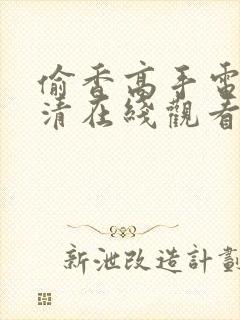 偷香高手電
清在綫觀看
新泄改造計劃